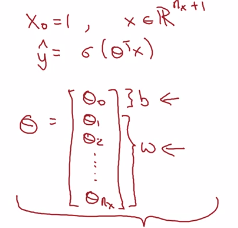 X₀ = 1 , x ∈ ℝⁿˣ⁺¹
ŷ = σ(θᵀx)
θ = [θ₀ } b ←
θ₁
θ₂
⋮ } w ←
θₙₓ]